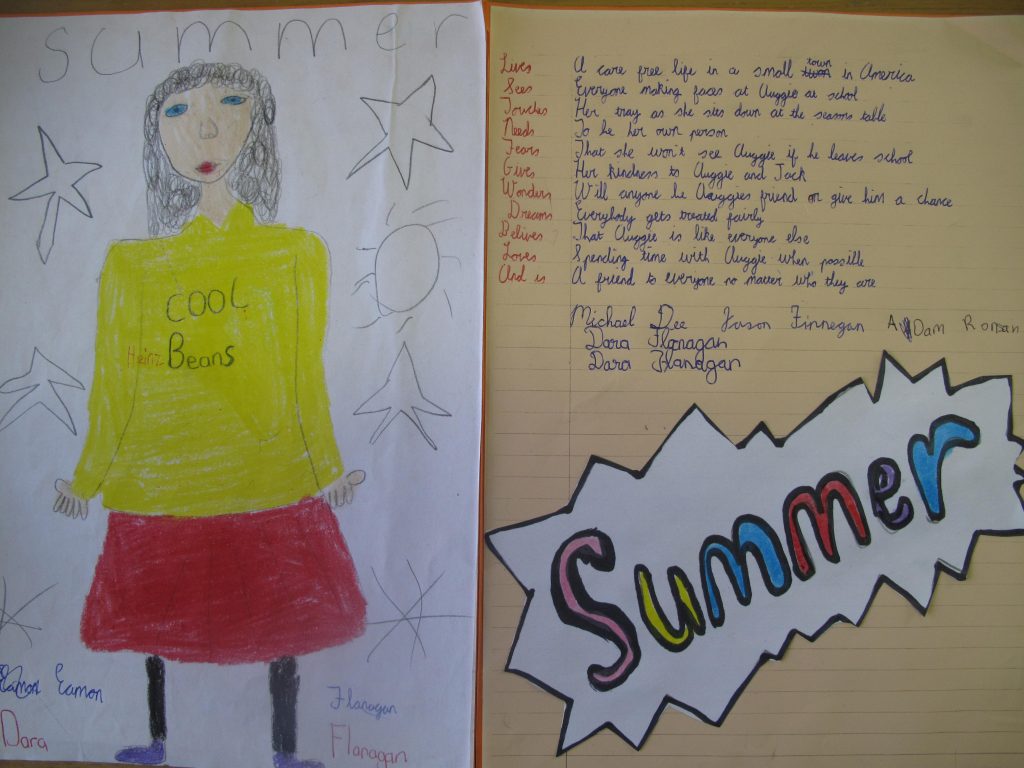 summer
COOL
Heinz Beans
Eamon Eamon
Dara
Flanagan
Flanagan
Lives A care free life in a small town in America
Sees Everyone making faces at Auggie at school
Touches Her tray as she sits down at the seasons table
Needs To be her own person
Fears That she won't see Auggie if he leaves school
Gives Her kindness to Auggie and Jack
Wonders Will anyone be Auggies friend or give him a chance
Dreams Everybody gets treated fairly
Belives That Auggie is like everyone else
Loves Spending time with Auggie when possible
And is A friend to everyone no matter who they are
Michael Dee Jason Finnegan ADam Ronan
Dara Flanagan
Dara Flanagan
Summer